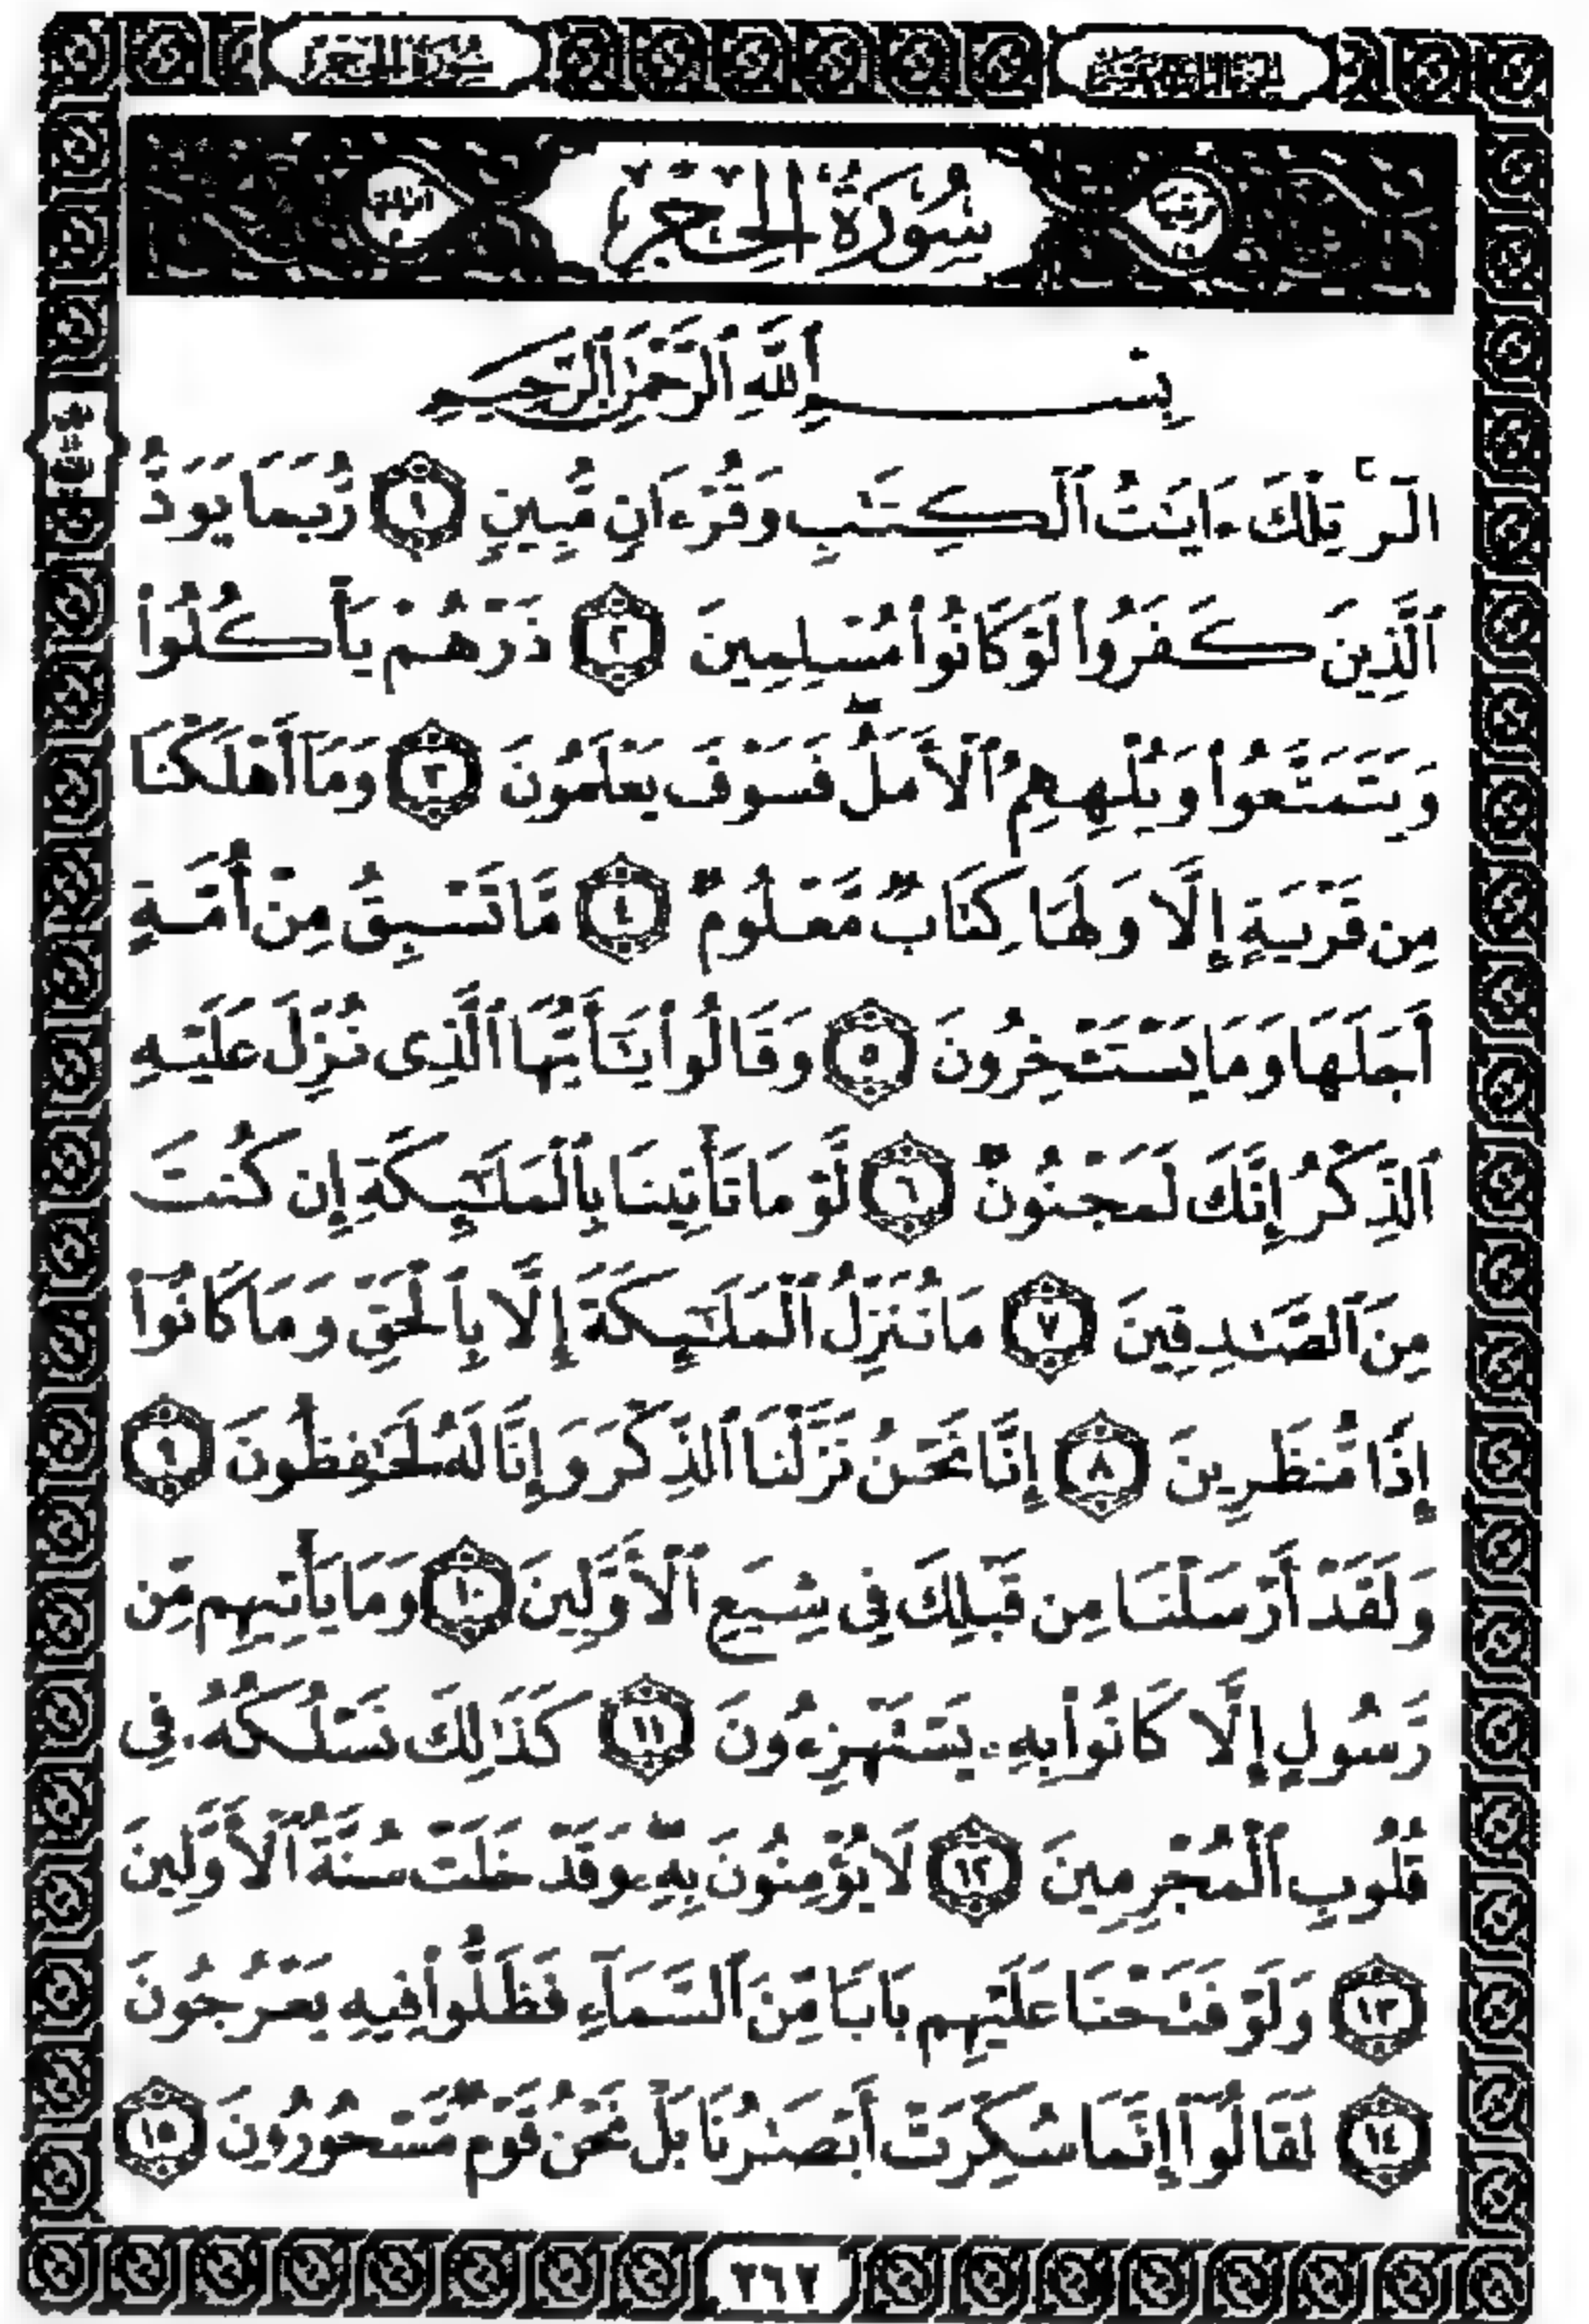 سُورَةُ الْحِجْرِ
بِسْمِ ٱللَّهِ ٱلرَّحْمَٰنِ ٱلرَّحِيمِ
الٓر ۚ تِلْكَ ءَايَٰتُ ٱلْكِتَٰبِ وَقُرْءَانٍ مُّبِينٍ ١ رُّبَمَا يَوَدُّ
ٱلَّذِينَ كَفَرُوا۟ لَوْ كَانُوا۟ مُسْلِمِينَ ٢ ذَرْهُمْ يَأْكُلُوا۟
وَيَتَمَتَّعُوا۟ وَيُلْهِهِمُ ٱلْأَمَلُ ۖ فَسَوْفَ يَعْلَمُونَ ٣ وَمَآ أَهْلَكْنَا
مِن قَرْيَةٍ إِلَّا وَلَهَا كِتَابٌ مَّعْلُومٌ ٤ مَّا تَسْبِقُ مِنْ أُمَّةٍ
أَجَلَهَا وَمَا يَسْتَـْٔخِرُونَ ٥ وَقَالُوا۟ يَٰٓأَيُّهَا ٱلَّذِى نُزِّلَ عَلَيْهِ
ٱلذِّكْرُ إِنَّكَ لَمَجْنُونٌ ٦ لَّوْ مَا تَأْتِينَا بِٱلْمَلَٰٓئِكَةِ إِن كُنتَ
مِنَ ٱلصَّٰدِقِينَ ٧ مَا نُنَزِّلُ ٱلْمَلَٰٓئِكَةَ إِلَّا بِٱلْحَقِّ وَمَا كَانُوٓا۟
إِذًا مُّنظَرِينَ ٨ إِنَّا نَحْنُ نَزَّلْنَا ٱلذِّكْرَ وَإِنَّا لَهُۥ لَحَٰفِظُونَ ٩
وَلَقَدْ أَرْسَلْنَا مِن قَبْلِكَ فِى شِيَعِ ٱلْأَوَّلِينَ ١٠ وَمَا يَأْتِيهِم مِّن
رَّسُولٍ إِلَّا كَانُوا۟ بِهِۦ يَسْتَهْزِءُونَ ١١ كَذَٰلِكَ نَسْلُكُهُۥ فِى
قُلُوبِ ٱلْمُجْرِمِينَ ١٢ لَا يُؤْمِنُونَ بِهِۦ ۖ وَقَدْ خَلَتْ سُنَّةُ ٱلْأَوَّلِينَ
١٣ وَلَوْ فَتَحْنَا عَلَيْهِم بَابًا مِّنَ ٱلسَّمَآءِ فَظَلُّوا۟ فِيهِ يَعْرُجُونَ
١٤ لَقَالُوٓا۟ إِنَّمَا سُكِّرَتْ أَبْصَٰرُنَا بَلْ نَحْنُ قَوْمٌ مَّسْحُورُونَ ١٥
٢٦٢